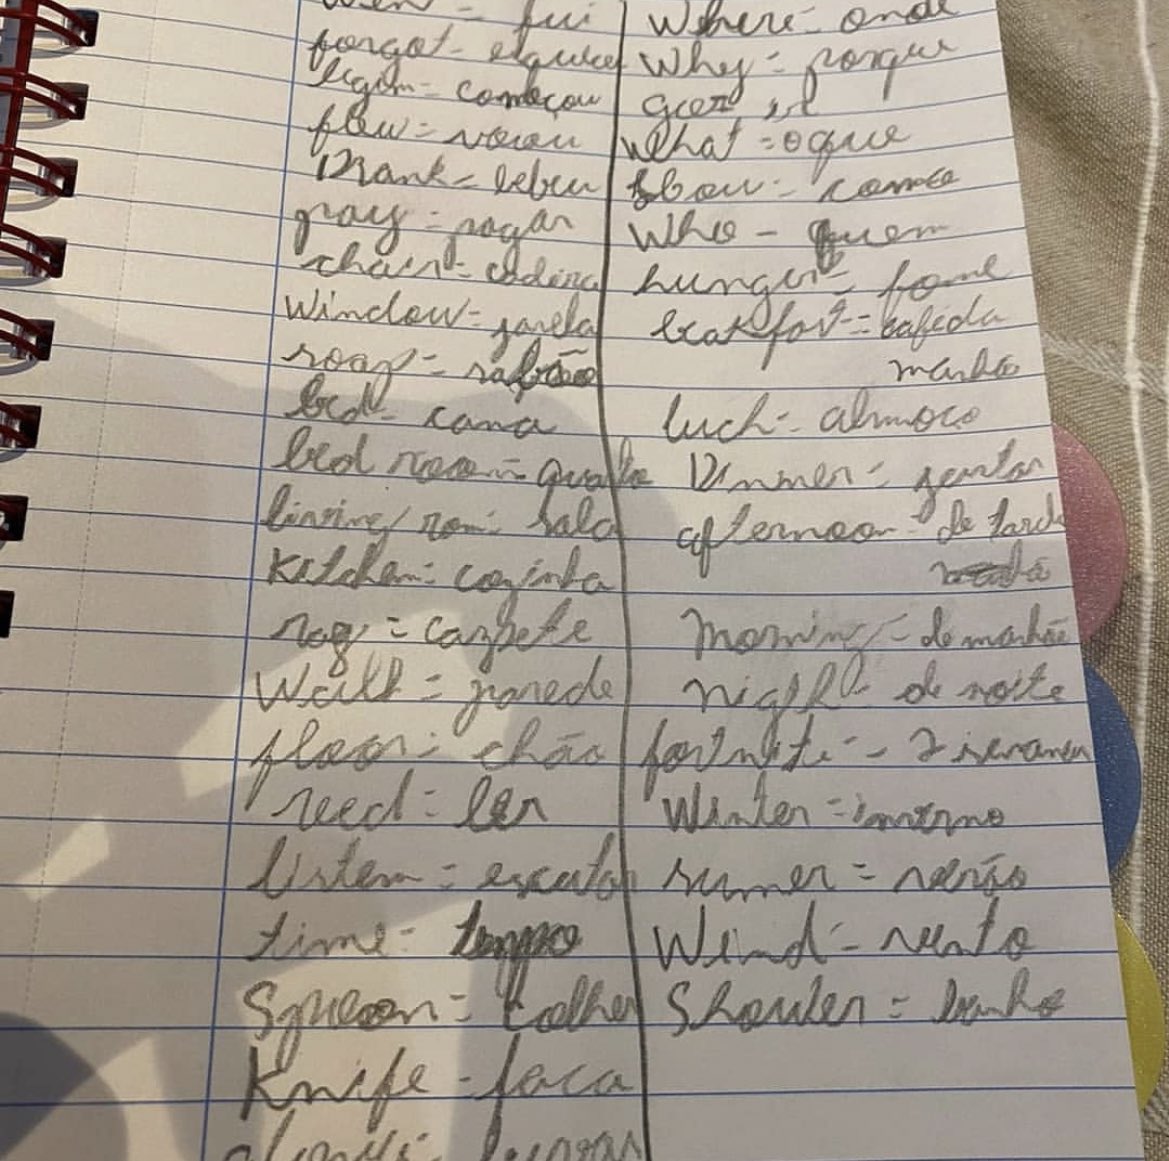 = fui
forgot = esqueceu
= começou
flew = voou
Drank = bebeu
pay = pagar
chair = cadeira
Window = janela
soap = sabão
bed = cama
bed room = quarto
living room: Sala
Kitchen: cozinha
rog = carpete
Wall = parede
floor: chão
reed = ler
listen = escutar
time = tempo
= Colher
Knife - faca
Where = onde
Why = porque
What = o que
como
Who - quem
hunger = fome
= café da
manhã
luch = almoco
Dinner = jantar
afternoon = de tarde
Morning = de manhão
night = de noite
2 semanas
Winter = inverno
sumer = verão
Wind = vento
Shower = banho